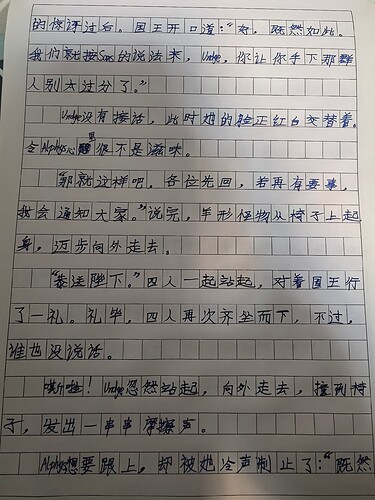 的惊讶过后。国王开口道:“好，既然如此。
我们就按Sans的说法来，Undye，你让你手下那群
人别太过分了。”
Undye没有接话，此时她的脸正红白交替着。
令Alphys心里很不是滋味。
“那就这样吧，各位先回，若再有要事，
我会通知大家。”说完，羊形怪物从椅子上起
身，迈步向外走去。
“恭送陛下。”四人一起站起，对着国王行
了一礼。礼毕，四人再次齐坐而下，不过，
谁也没说话。
嘶啦！Undye忽然站起，向外走去，撞到椅
子，发出一串串摩擦声。
Alphys想要跟上，却被她冷声制止了:“既然